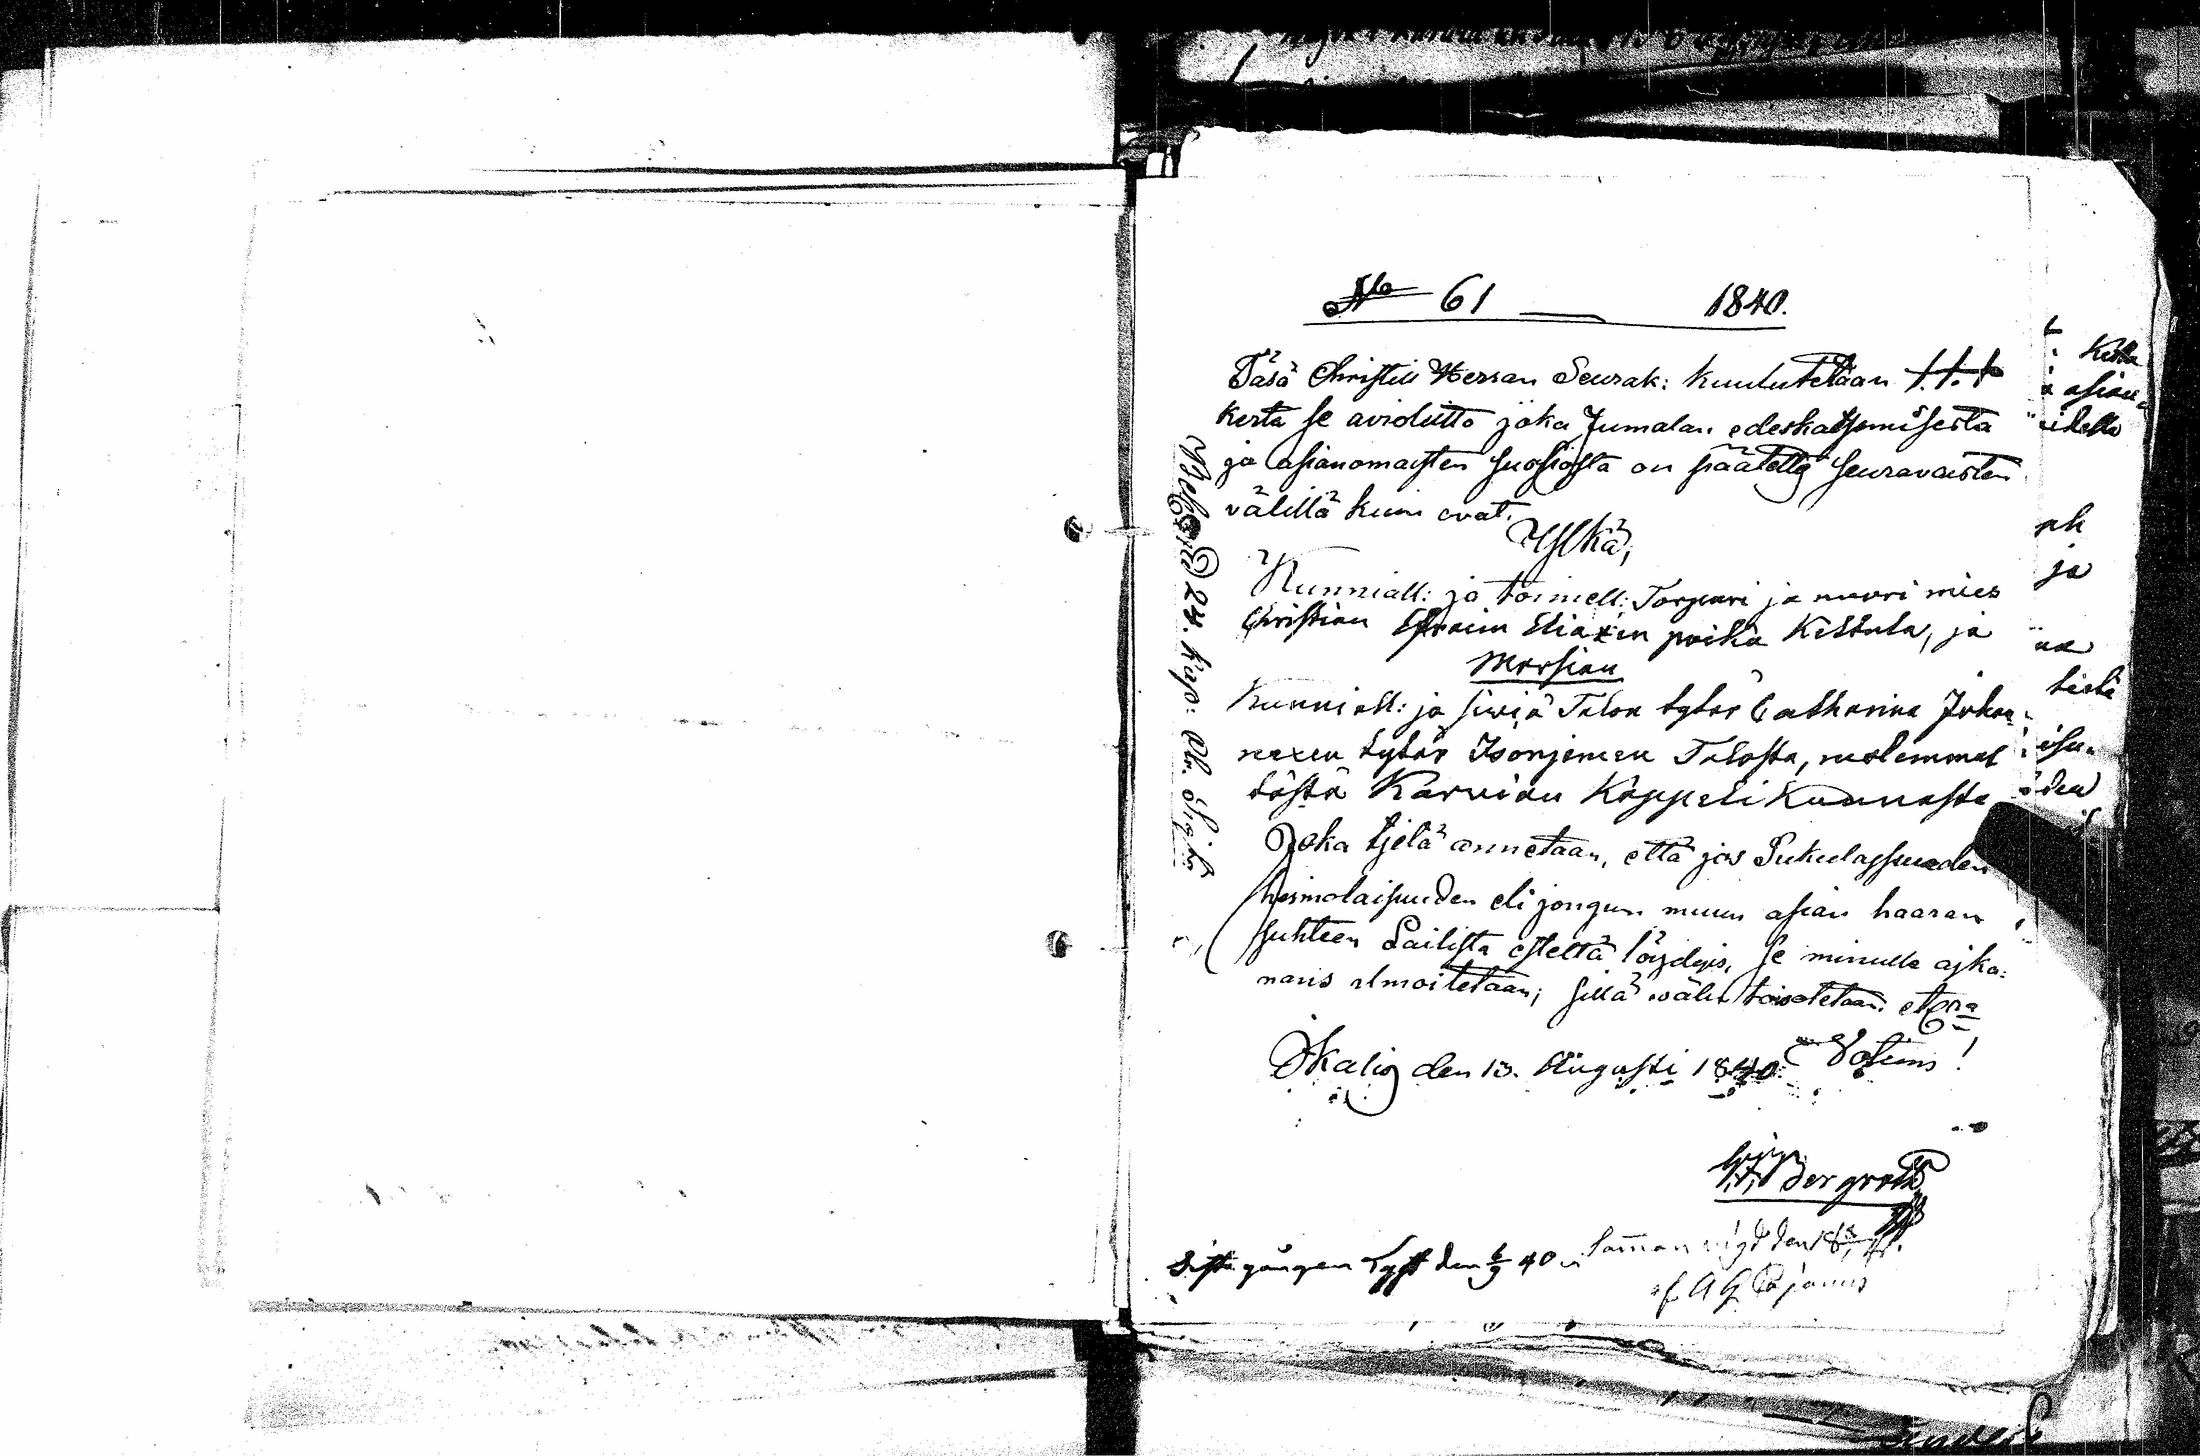 No 61 — 1840.
Täsä Christill Herran Seurak: kuulutetaan 1. 1. 1
kerta se avioliitto joka Jumalan edeskatsomisesta
ja asianomaisten suosiosta on päätetty seuravaisten
välillä kuin ovat.
Ylkä,
Kunniall: ja toimell: Torpari ja nuori mies
Christian Efraim Eliaxen poika Kettula, ja
Morsian
Kunniall: ja siviä Talon tytär Catharina Johan-
nexen tytär Isonjemen Talosta, molemmat
tästä Karvian Kappeli Kunnasta
Joka tjetä annetaan, että jos Sukulaisuuden
heimolaisuuden eli jongun muun asian haaran
suhteen Lailista estettä löydyis, se minulle ajka-
nans ilmoitetaan; sillä välin toivotetaan etc
Ikalis den 13. Augusti 1840. Votims!
Bergroth
Sista gången Lyst den 6/9 40
Samman vigd den 18
af A G Pajanus
24. Kap: